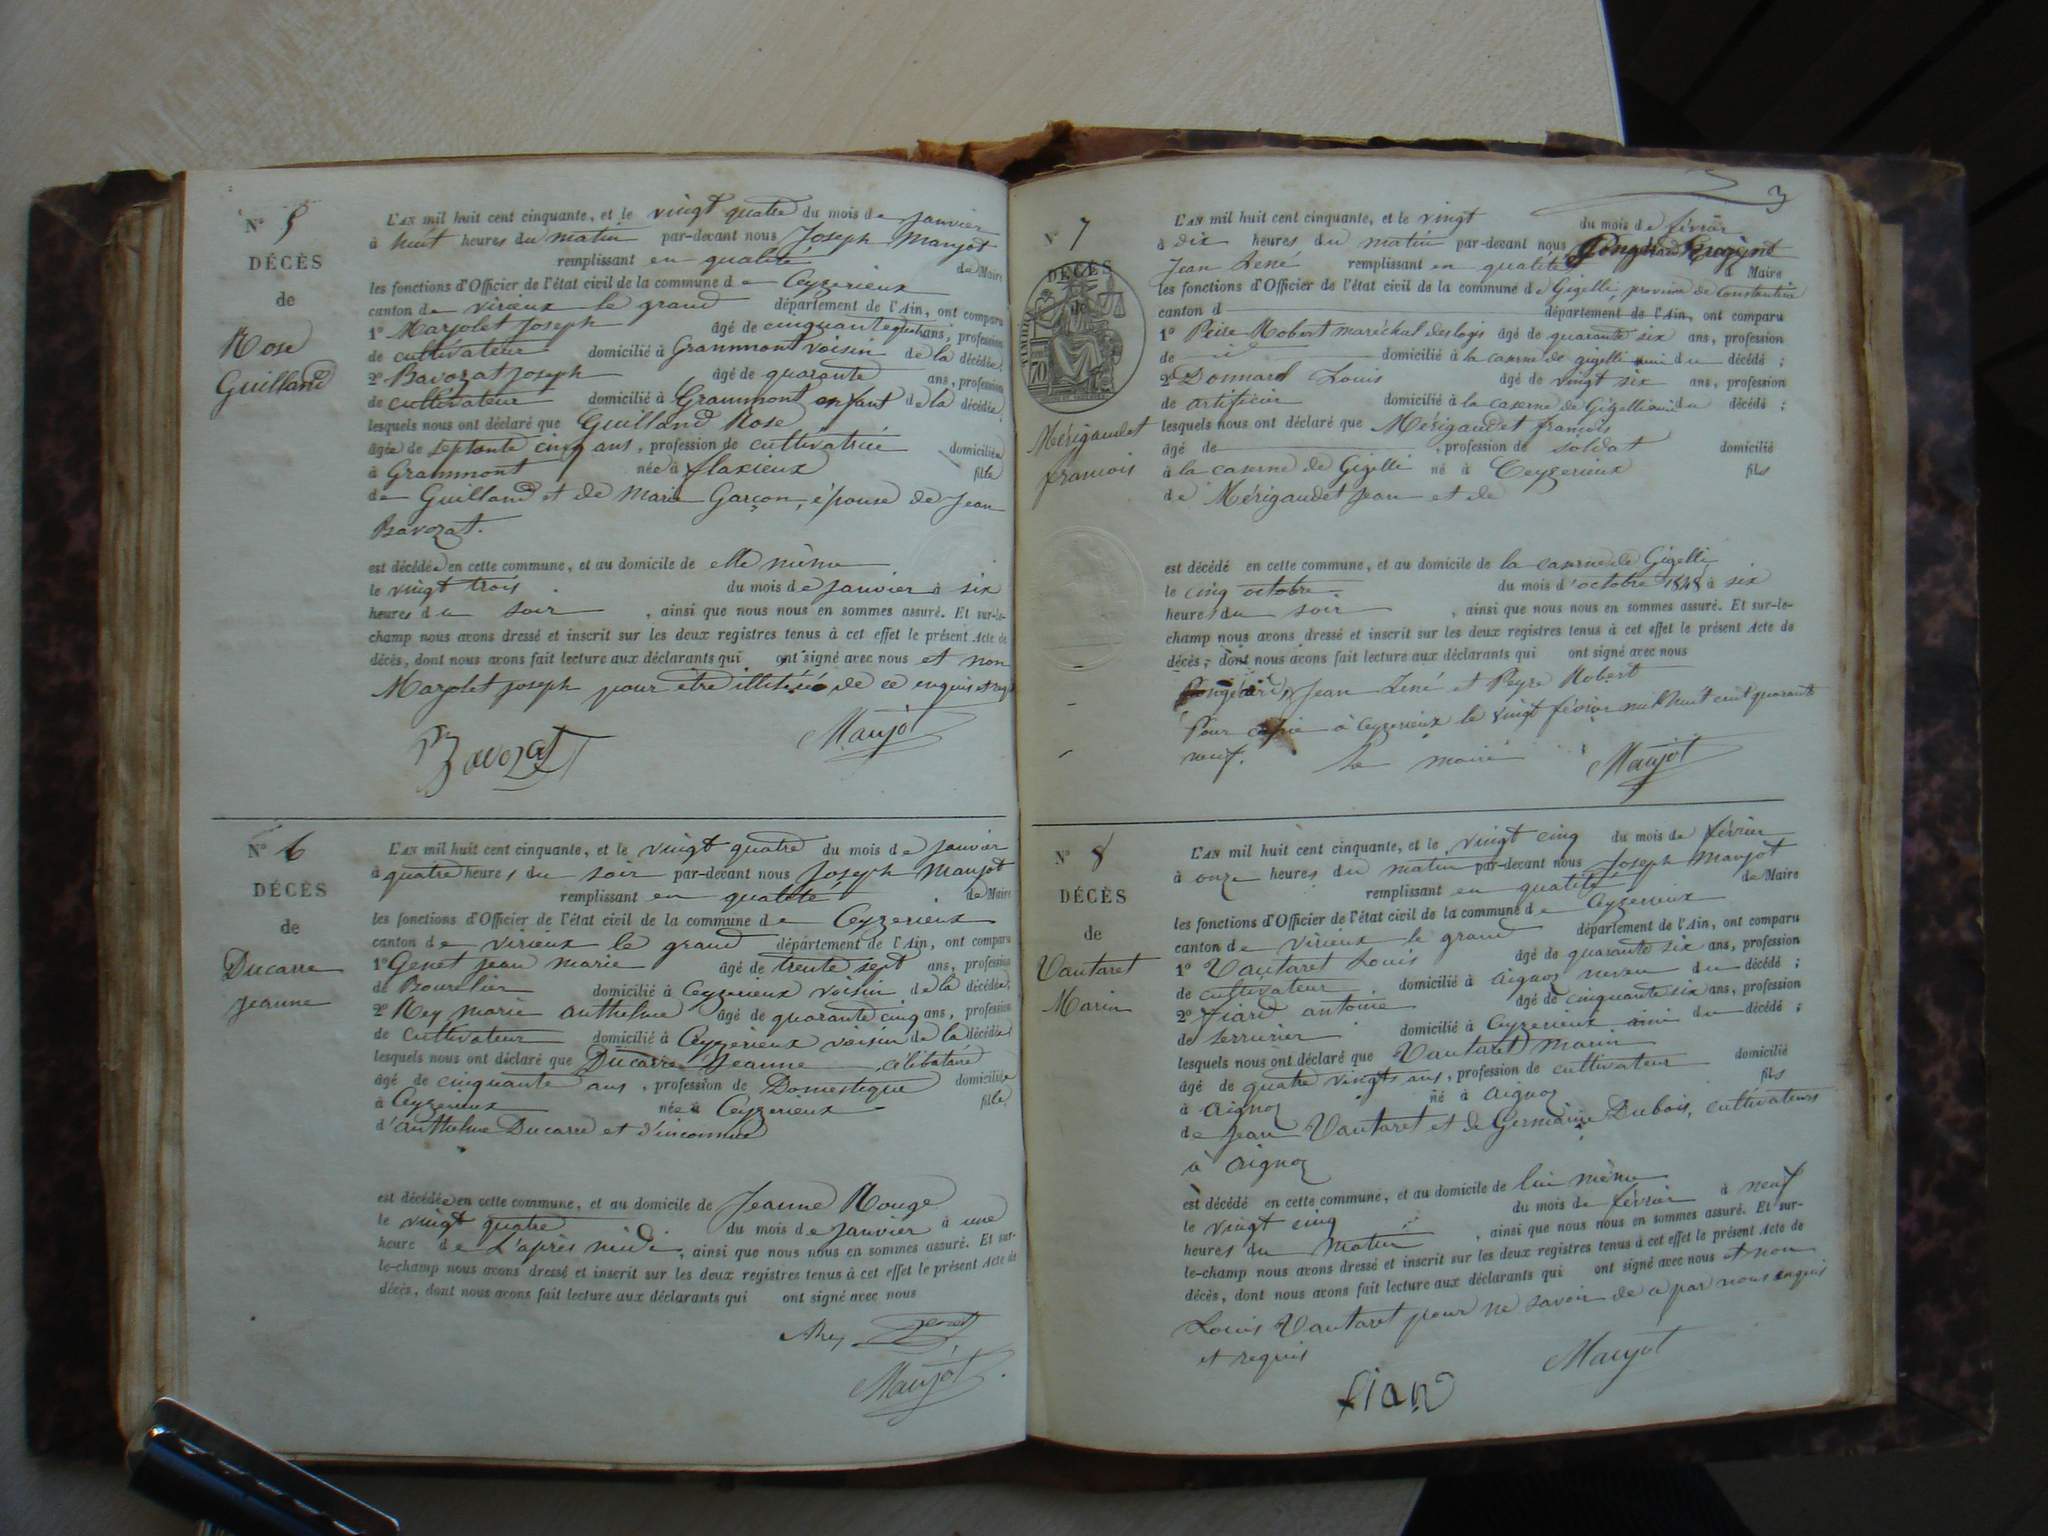 N° 5
DÉCÈS
de
Rose
Guilland
L'AN mil huit cent cinquante, et le vingt quatre du mois de janvier
à huit heures du matin par-devant nous Joseph Maujot
remplissant en qualité de Maire
les fonctions d'Officier de l'état civil de la commune de Ceyzerieux
canton de virieux le grand département de l'Ain, ont comparu
1° Marjolet Joseph âgé de cinquante ans, profession
de cultivateur domicilié à Grammont voisin de la décédée,
2° Bavozat Joseph âgé de quarante ans, profession
de cultivateur domicilié à Grammont enfant de la décédée,
lesquels nous ont déclaré que Guilland Rose
âgée de septante cinq ans, profession de cultivatrice domiciliée
à Grammont née à flaxieux fille
de Guilland et de Marie Garçon, épouse de Jean
Bavozat.
est décédée en cette commune, et au domicile de elle même
le vingt trois du mois de janvier à six
heures du soir, ainsi que nous nous en sommes assuré. Et sur-le-
champ nous avons dressé et inscrit sur les deux registres tenus à cet effet le présent Acte de
décès, dont nous avons fait lecture aux déclarants qui ont signé avec nous et non
Marjolet joseph pour être illitéré de ce enquis et
Bavozat Maujot
N° 6
DÉCÈS
de
Ducarre
Jeanne
L'AN mil huit cent cinquante, et le vingt quatre du mois de janvier
à quatre heures du soir par-devant nous Joseph Maujot
remplissant en qualité de Maire
les fonctions d'Officier de l'état civil de la commune de Ceyzerieux
canton de virieux le grand département de l'Ain, ont comparu
1° Genet jean marie âgé de trente sept ans, profession
de Bourelier domicilié à Ceyzerieux voisin de la décédée;
2° Rey marie anthelme âgé de quarante cinq ans, profession
de cultivateur domicilié à Ceyzerieux voisin de la décédée
lesquels nous ont déclaré que Ducarre Jeanne célibataire
âgé de cinquante ans, profession de Domestique domiciliée
à Ceyzerieux née à Ceyzerieux fille
d'anthelme Ducarre et d'inconnue
est décédée en cette commune, et au domicile de Jeanne Rouge
le vingt quatre du mois de janvier à une
heure de L'après midi, ainsi que nous nous en sommes assuré. Et sur-
le-champ nous avons dressé et inscrit sur les deux registres tenus à cet effet le présent Acte de
décès, dont nous avons fait lecture aux déclarants qui ont signé avec nous
Rey Genet
Maujot
3
N° 7
DÉCÈS
de
Mérigaudet
francois
L'AN mil huit cent cinquante, et le vingt du mois de février
à dix heures du matin par-devant nous
Jean René remplissant en qualité Maire
les fonctions d'Officier de l'état civil de la commune de Gigelli, province de Constantine
canton d département de l'Ain, ont comparu
1° Peire Robert maréchal des logis âgé de quarante six ans, profession
de domicilié à la caserne de gigelli ami du décédé;
2° Donnard Louis âgé de vingt six ans, profession
de artificier domicilié à la caserne de Gigelli ami du décédé;
lesquels nous ont déclaré que Mérigaudet francois
âgé de, profession de soldat domicilié
à la caserne de Gigelli né à Ceyzerieux fils
de Mérigaudet Jean et de
est décédé en cette commune, et au domicile de la caserne de Gigelli
le cinq octobre du mois d'octobre 1848 à six
heures du soir, ainsi que nous nous en sommes assuré. Et sur-le-
champ nous avons dressé et inscrit sur les deux registres tenus à cet effet le présent Acte de
décès, dont nous avons fait lecture aux déclarants qui ont signé avec nous
Jean René et Peyre Robert
Pour copie à Ceyzerieux le vingt février mil huit cent quarante
neuf. Le maire Maujot
N° 8
DÉCÈS
de
Vautaret
Marin
L'AN mil huit cent cinquante, et le vingt cinq du mois de février
à onze heures du matin par-devant nous Joseph Maujot
remplissant en qualité de Maire
les fonctions d'Officier de l'état civil de la commune de Ceyzerieux
canton de virieux le grand département de l'Ain, ont comparu
1° Vautaret Louis âgé de quarante six ans, profession
de cultivateur domicilié à aignoz neveu du décédé;
2° fiard antoine âgé de cinquante six ans, profession
de serrurier domicilié à Ceyzerieux ami du décédé;
lesquels nous ont déclaré que Vautaret marin
âgé de quatre vingts ans, profession de cultivateur domicilié
à aignoz né à aignoz fils
de Jean Vautaret et de Germaine Dubois, cultivateurs
à aignoz
est décédé en cette commune, et au domicile de lui même
le vingt cinq du mois de février à neuf
heures du matin, ainsi que nous nous en sommes assuré. Et sur-
le-champ nous avons dressé et inscrit sur les deux registres tenus à cet effet le présent Acte de
décès, dont nous avons fait lecture aux déclarants qui ont signé avec nous et non
Louis Vautaret pour ne savoir de ce par nous enquis
et requis Maujot
fiard